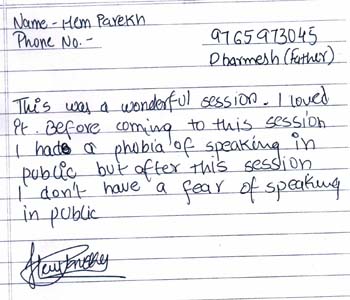 Name - Hem Parekh
Phone No. - 9765973045
Dharmesh (Father)
This was a wonderful session. I loved
it. Before coming to this session
I had a phobia of speaking in
public but after this session
I don't have a fear of speaking
in public